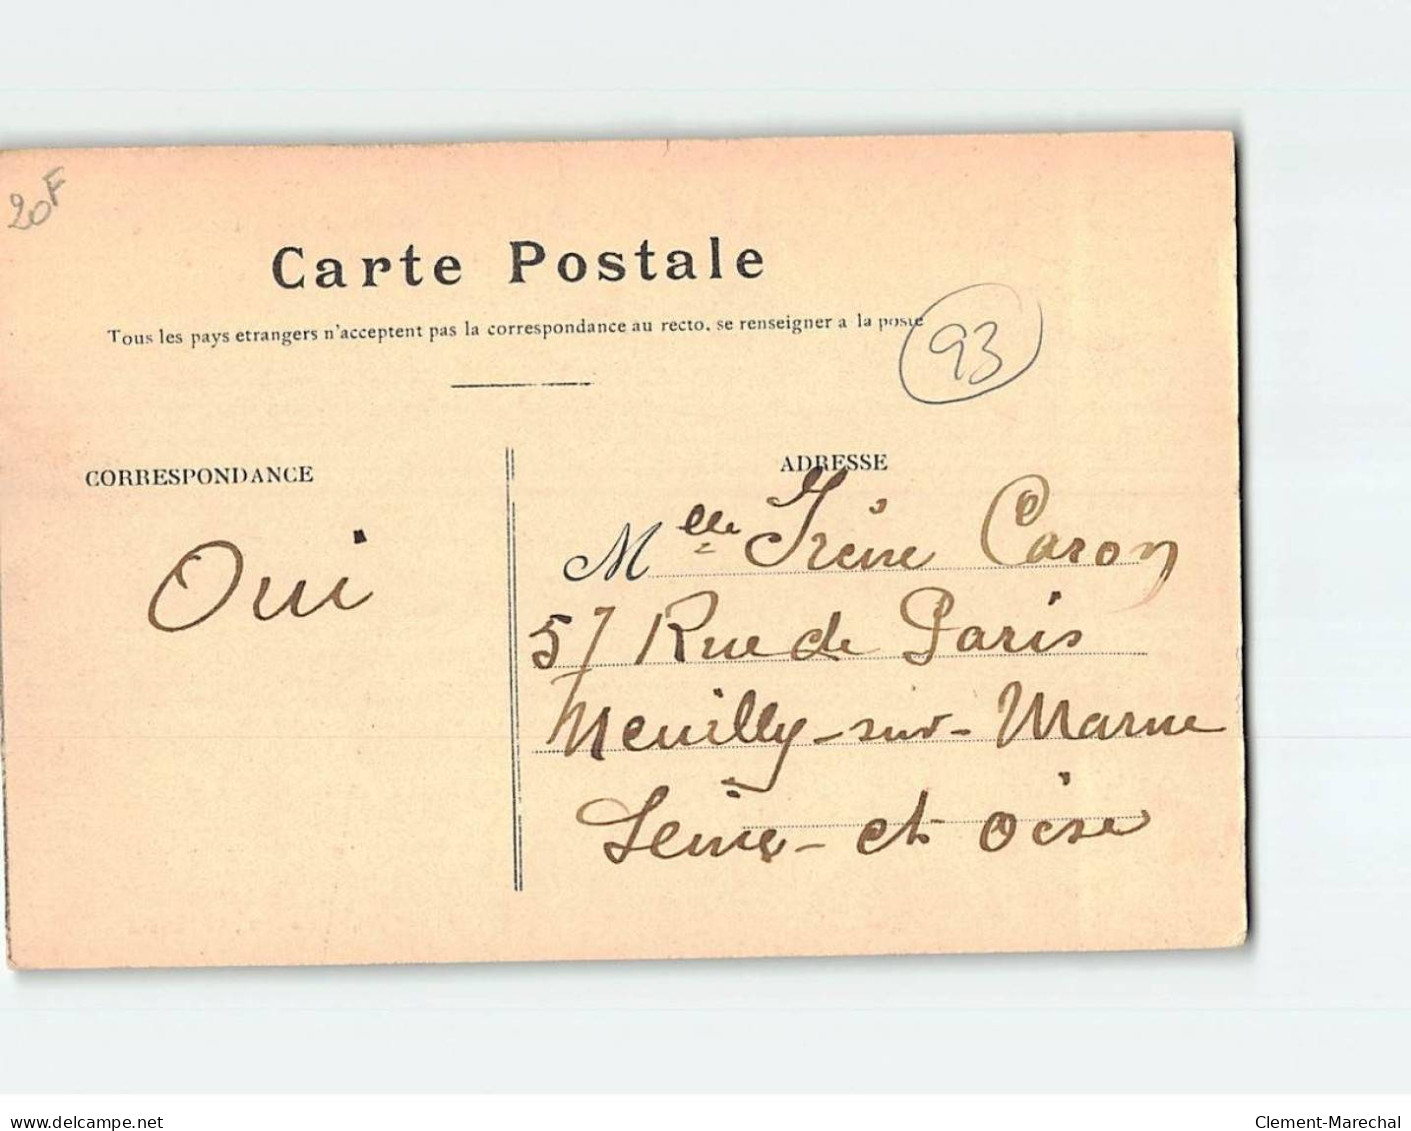 20F
Carte Postale
Tous les pays etrangers n'acceptent pas la correspondance au recto. se renseigner a la poste
93
CORRESPONDANCE
Oui
ADRESSE
Mlle Irène Caron
57 Rue de Paris
Neuilly-sur-Marne
Seine-et Oise
www.delcampe.net
Clement-Marechal